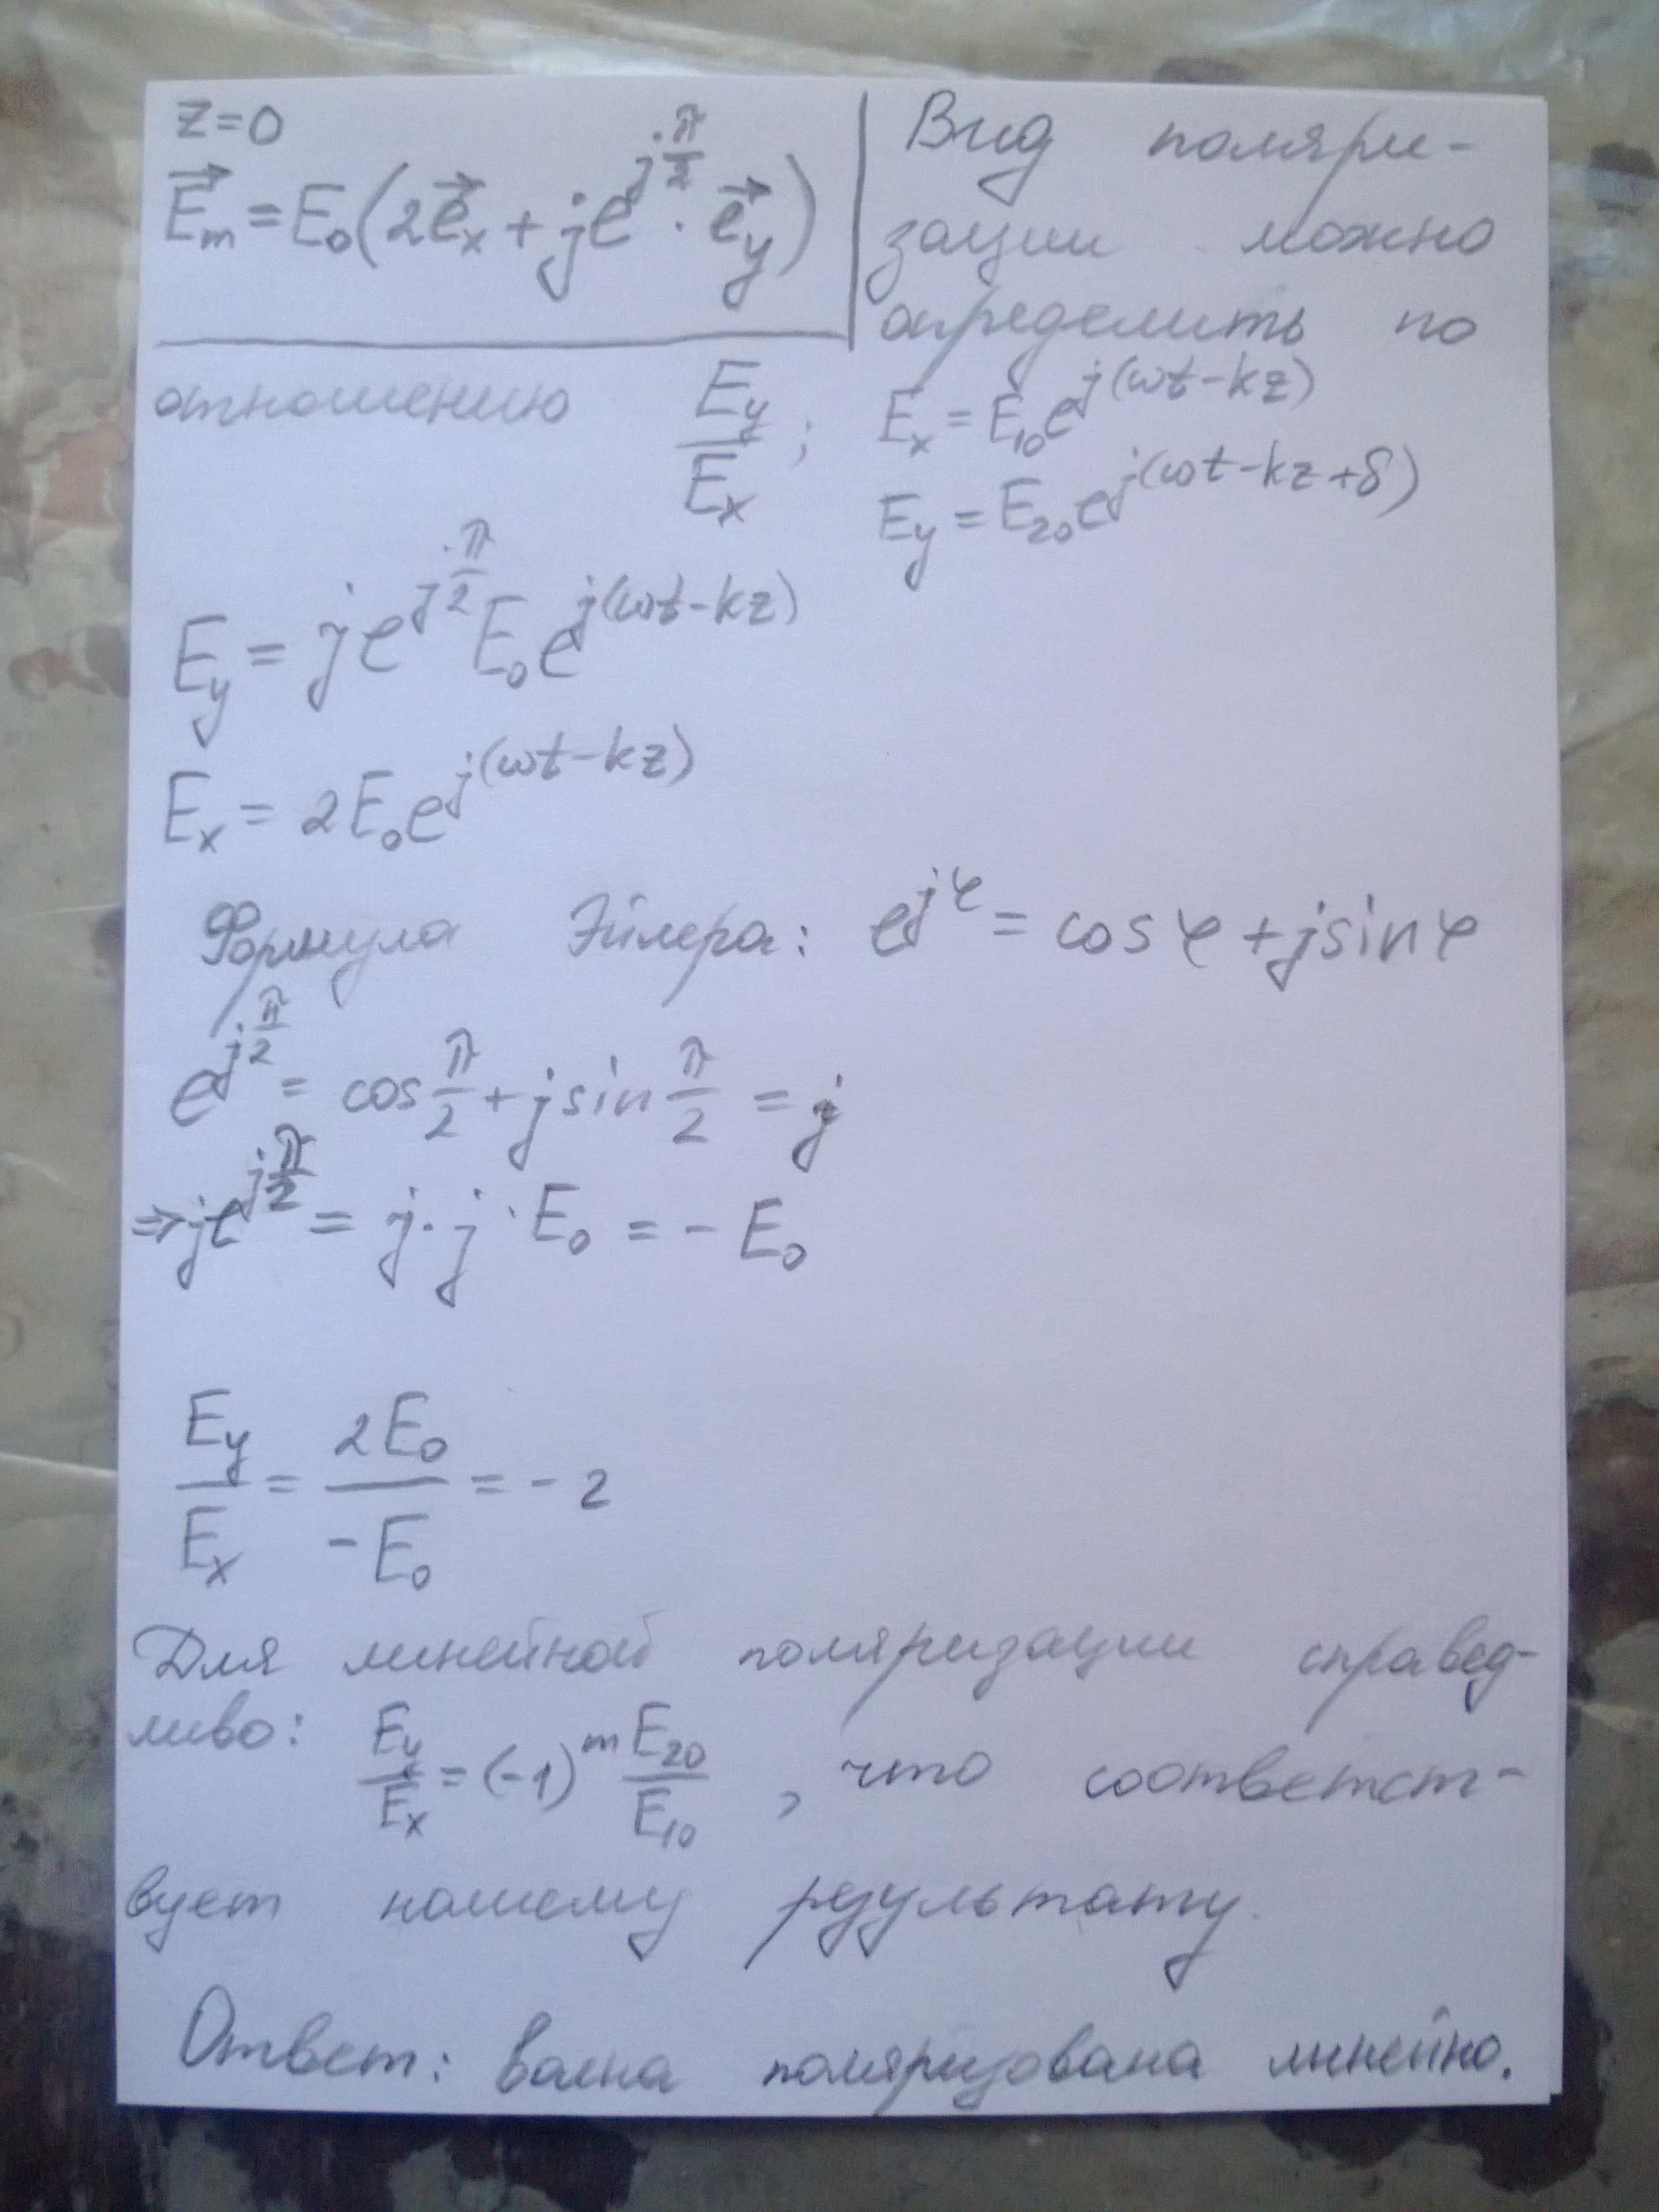 z=0
E⃗ₘ = E₀(2e⃗ₓ + je^(jπ/2) · e⃗ᵧ)
Вид поляри-
зации можно
определить по
отношению Eᵧ/Eₓ ; Eₓ = E₁₀e^(j(ωt-kz))
Eᵧ = E₂₀e^(j(ωt-kz+δ))
Eᵧ = je^(jπ/2) E₀e^(j(ωt-kz))
Eₓ = 2E₀e^(j(ωt-kz))
Формула Эйлера: e^(jφ) = cosφ + jsinφ
e^(jπ/2) = cos π/2 + jsin π/2 = j
⇒ je^(jπ/2) = j · j · E₀ = - E₀
Eᵧ/Eₓ = 2E₀/-E₀ = -2
Для линейной поляризации справед-
ливо: Eᵧ/Eₓ = (-1)^m E₂₀/E₁₀ , что соответст-
вует нашему результату.
Ответ: волна поляризована линейно.